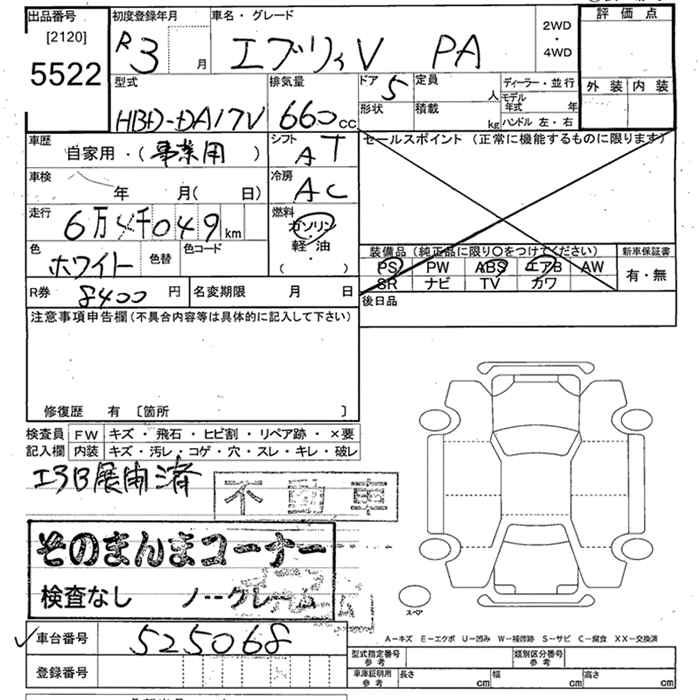 出品番号 初度登録年月 車名・グレード 評価点
[2120] R3 月 エブリィV PA 2WD・4WD
5522 外装 内装
型式 排気量 ドア 定員 ディーラー・並行
HBD-DA17V 660cc 5 人 モデル年式 年
形状 積載 kg ハンドル 左・右
車歴 シフト セールスポイント(正常に機能するものに限ります)
自家用・(事業用) AT
車検 冷房
年 月(日) AC
走行 燃料
6万4千049km ガソリン・軽油
色 色替 色コード ( )
ホワイト
装備品(純正品に限り○をつけてください) 新車保証書
PS PW ABS エアB AW 有・無
SR ナビ TV カワ
R券 8400円 名変期限 月 日 後日品
注意事項申告欄(不具合内容等は具体的に記入して下さい)
修復歴 有 [箇所 ]
検査員 FW キズ・飛石・ヒビ割・リペア跡・×要
記入欄 内装 キズ・汚レ・コゲ・穴・スレ・キレ・破レ
エアB展開済
不動車
そのまんまコーナー
検査なし ノークレーム
スペア
車台番号 525068
登録番号
A-キズ E-エクボ U-凹み W-補修跡 S-サビ C-腐食 XX-交換済
型式指定番号 参考 類別区分番号 参考
車庫証明用 参考 長さ cm 幅 cm 高さ cm